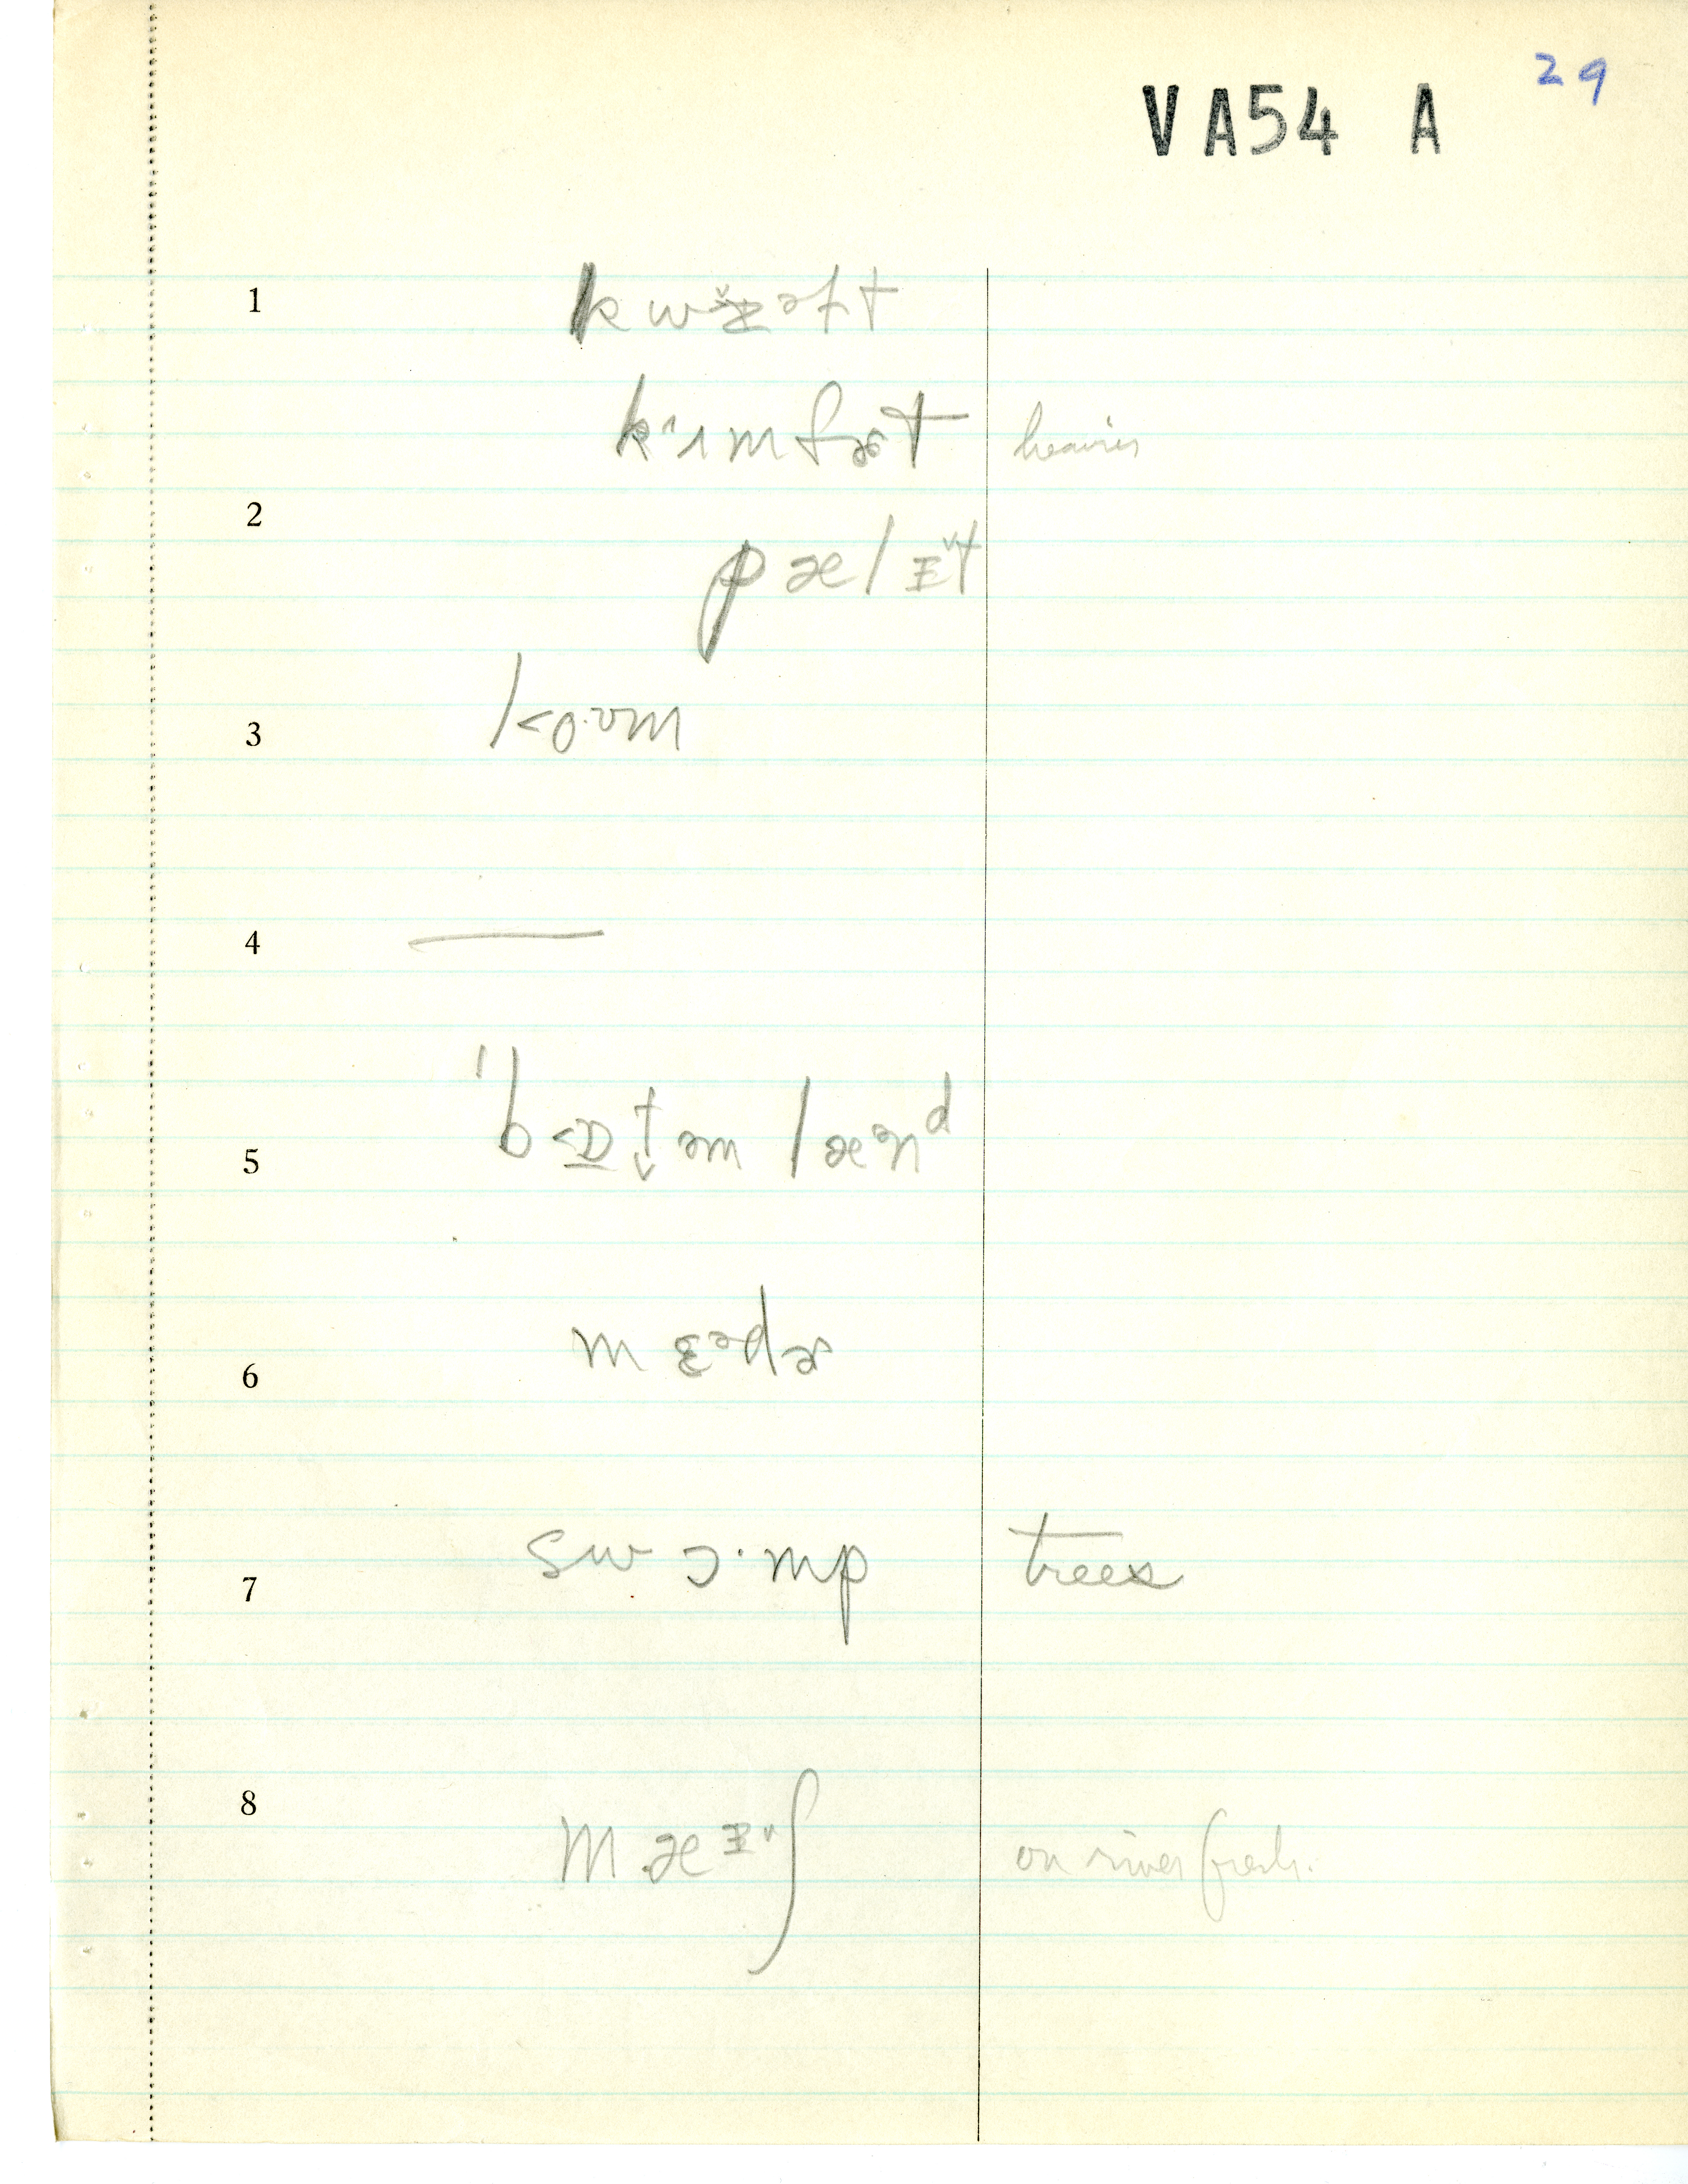 29
VA54 A
1 kwɨ̌ltəft
k˄ɪmfɚt heavier
2 pælɪ˅t
3 lo·ʊm
4 —
5 ˈb<ɒ̲t̬əm læᵊnᵈ
6 mɛᵊdɚ
7 swɔ·mp trees
8 mæɪ˅ʃ on river fresh.